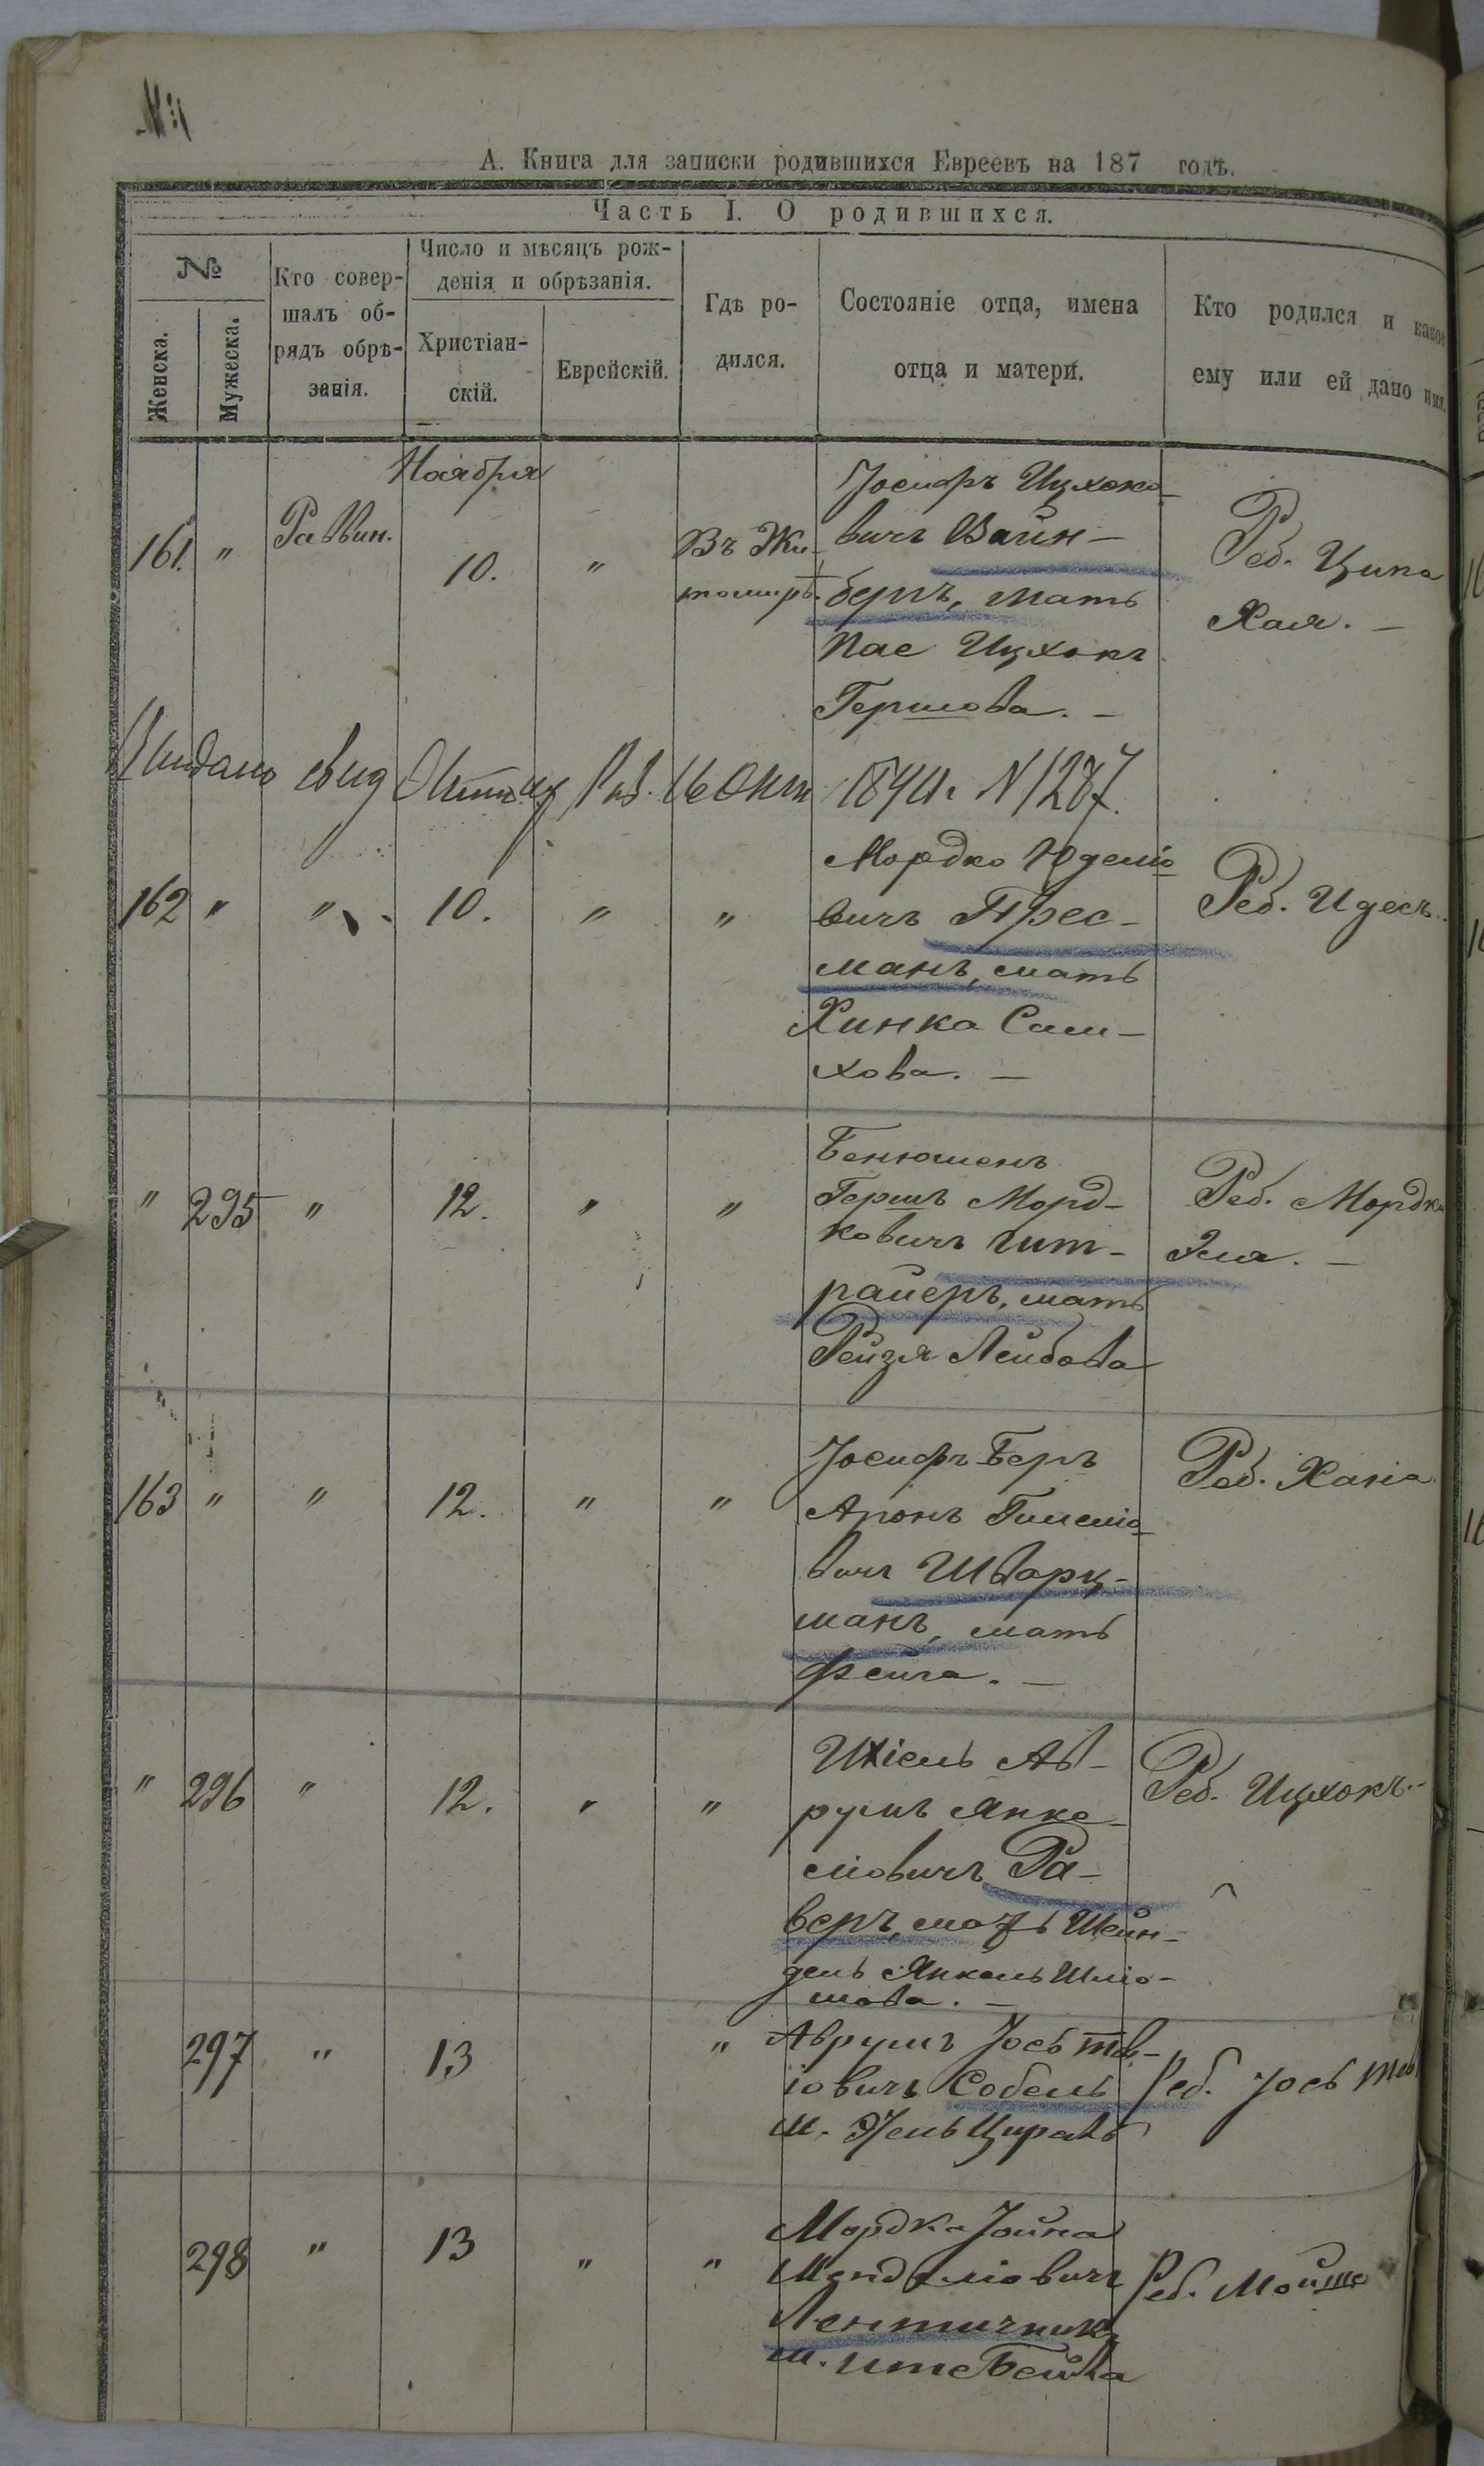 А. Книга для записки родившихся Евреевъ на 187 годъ.
Часть I. О родившихся.
№
Женска.
Мужеска.
Кто совершалъ обрядъ обрѣзанія.
Число и мѣсяцъ рожденія и обрѣзанія.
Христіанскій.
Еврейскій.
Гдѣ родился.
Состояніе отца, имена отца и матери.
Кто родился и какое ему или ей дано имя.
Ноября
161. " Раввин. 10. " Въ Житомирѣ.
Іосифъ Ицхоко-
вичъ Вайн-
бергъ, мать
Пае Ицхокъ
Гершова. -
Реб. Ципа
Хая. -
Выдано свид 16 Окт N 1287.
162 " " 10. " "
Мордко Юделіо
вичъ Прес-
манъ, мать
Хинка Сим-
хова. -
Реб. Идесъ.
" 295 " 12. " "
Бенюменъ
Гершъ Морд-
ковичъ Гит-
райеръ, мать
Рейзя Лейбова
Реб. Мордко
Эля. -
163 " " 12. " "
Іосифъ Беръ
Аронъ Гилеліо
вичъ Шварц-
манъ, мать
Фейга. -
Реб. Ханіа.
" 296 " 12. " "
Ихіель Ав-
румъ Янке-
ліовичъ Ра-
веръ, мать Шейн-
дель Янкель Шліо-
мова. -
Реб. Ицхокъ. -
297 " 13 "
Аврумъ Іось Тов-
іовичъ Собель
м. Этель
Реб. Іось
298 " 13 " "
Мордка Іойна
Менделіовичъ
Лентичник
м. Ите Бейла
Реб. Мойше